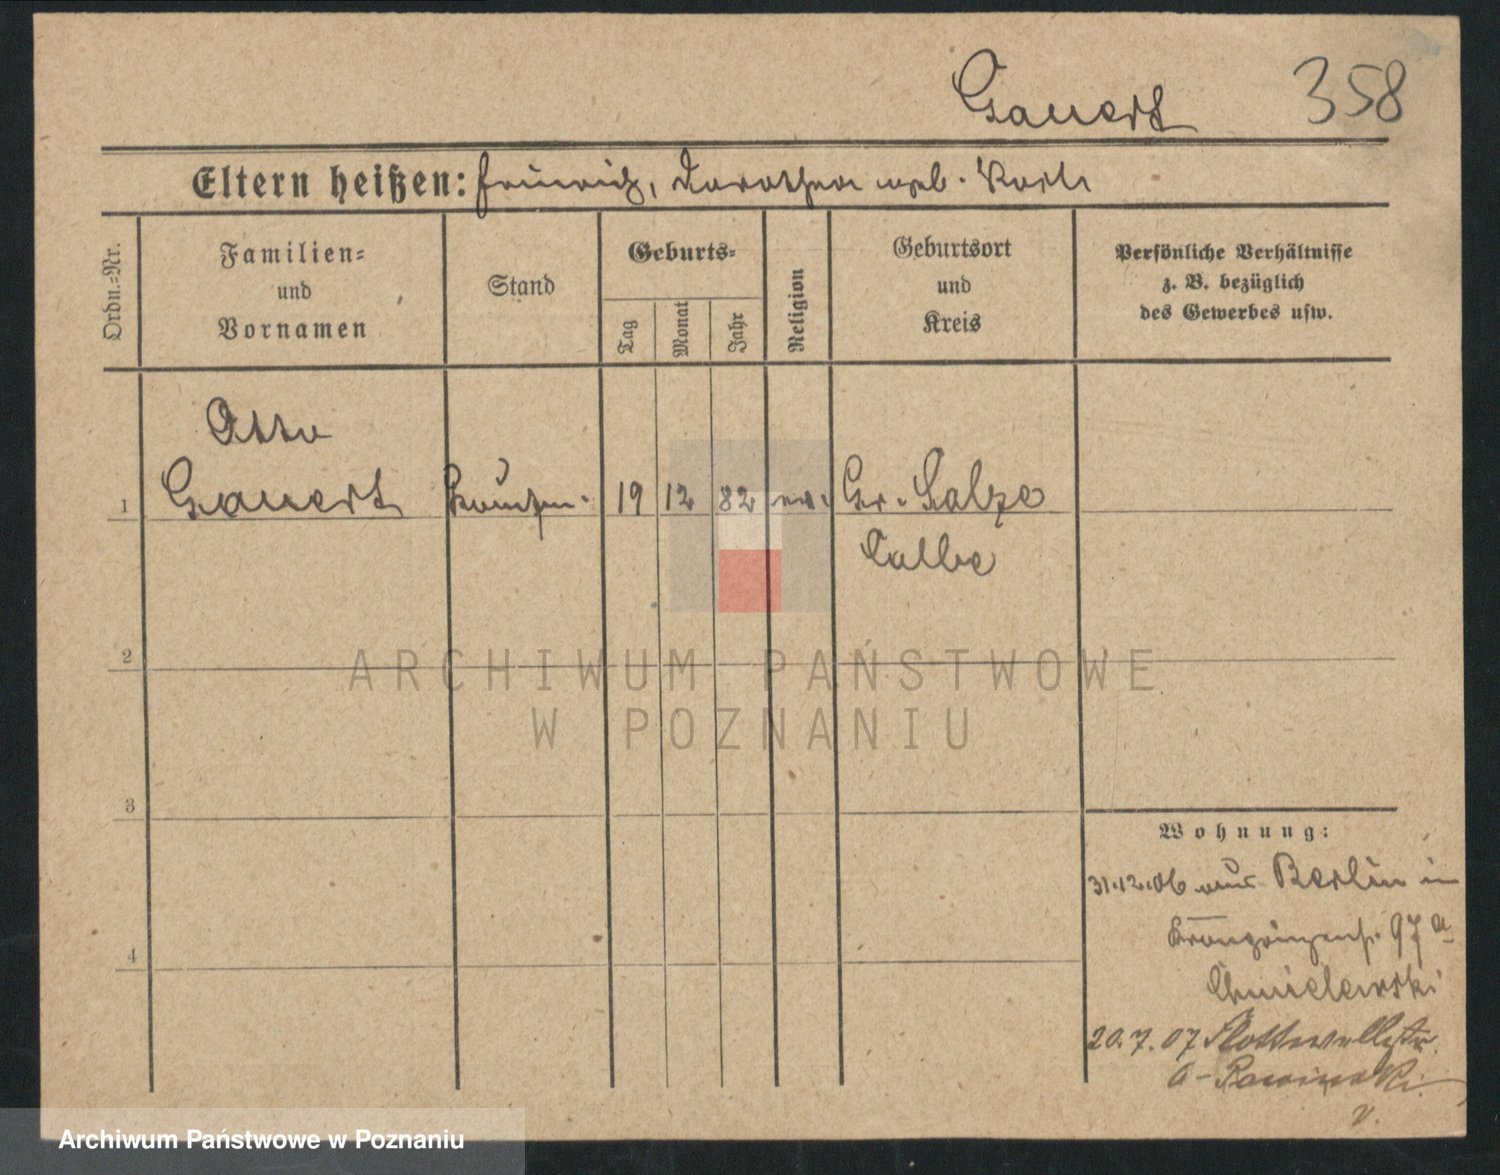 Gauert 358
Eltern heißen: Heinrich, Dorothea geb. Koch
Ordn.=Nr.
Familien=
und
Vornamen
Stand
Geburts=
Tag
Monat
Jahr
Religion
Geburtsort
und
Kreis
Persönliche Verhältnisse
z. B. bezüglich
des Gewerbes usw.
Otto
1 Gauert 19 12 82 ev. Gr. Salze
Calbe
2
ARCHIWUM PAŃSTWOWE
W POZNANIU
3
Wohnung:
31.12.06 aus Berlin in
Kronprinzenstr. 97a
Chmielewski
4
20.7.07 Flottwellstr.
6
v.
Archiwum Państwowe w Poznaniu